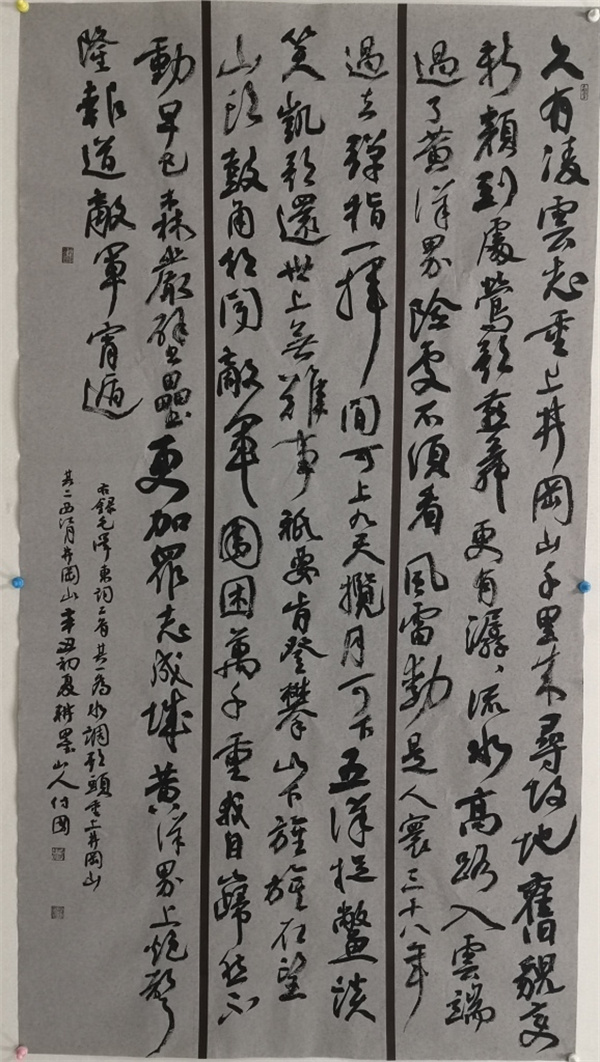 久有凌雲志重上井岡山千里來尋故地舊貌變
新顏到處鶯歌燕舞更有潺々流水高路入雲端
過了黄洋界險處不須看風雷動是人寰三十八年
過去彈指一揮間可上九天攬月可下五洋捉鱉談
笑凱歌還世上無難事祇要肯登攀山下旌旗在望
山頭鼓角相聞敵軍圍困萬千重我自巋然不
動早已森嚴壁壘更加眾志成城黄洋界上炮聲
隆報道敵軍宵遁
右錄毛澤東詞二首其一為水調歌頭重上井岡山
其二西江月井岡山辛丑初夏耕墨山人付國